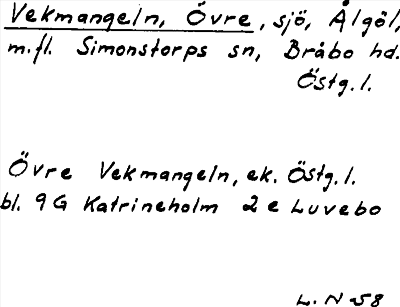 Vekmangeln, Övre, sjö, Ålgöl,
m.fl. Simonstorps sn, Bråbo hd.
Östg.l.
Övre Vekmangeln, ek. Östg.l.
bl. 9G Katrineholm 2e Luvebo
L. N 58